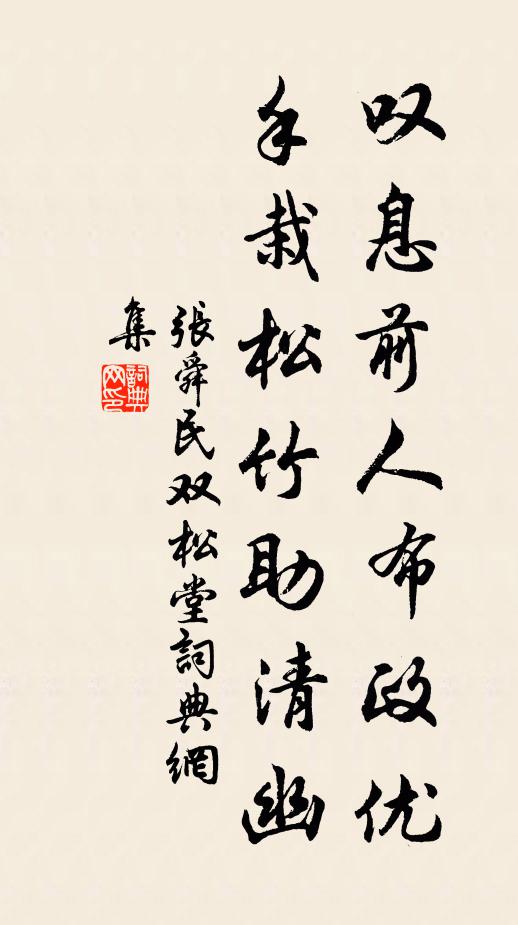 叹息前人布政优
手栽松竹助清幽
張舜民双松堂詞典網
集
詞典
网印